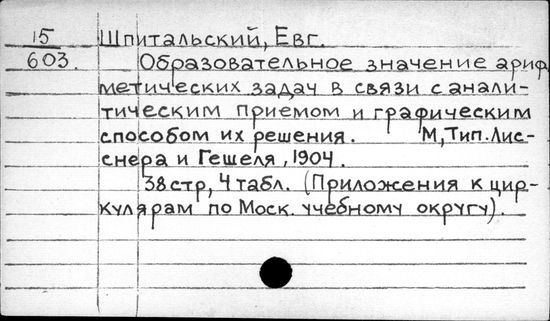 15 Шпитальский, Евг.
603. Образовательное значение ариф
метических задач в связи с анали-
тическим приемом и графическим
способом их решения. М, Тип. Лис-
снера и Гешеля, 1904.
38 стр, 4 табл. (Приложения к цир-
кулярам по Моск. учебному округу).